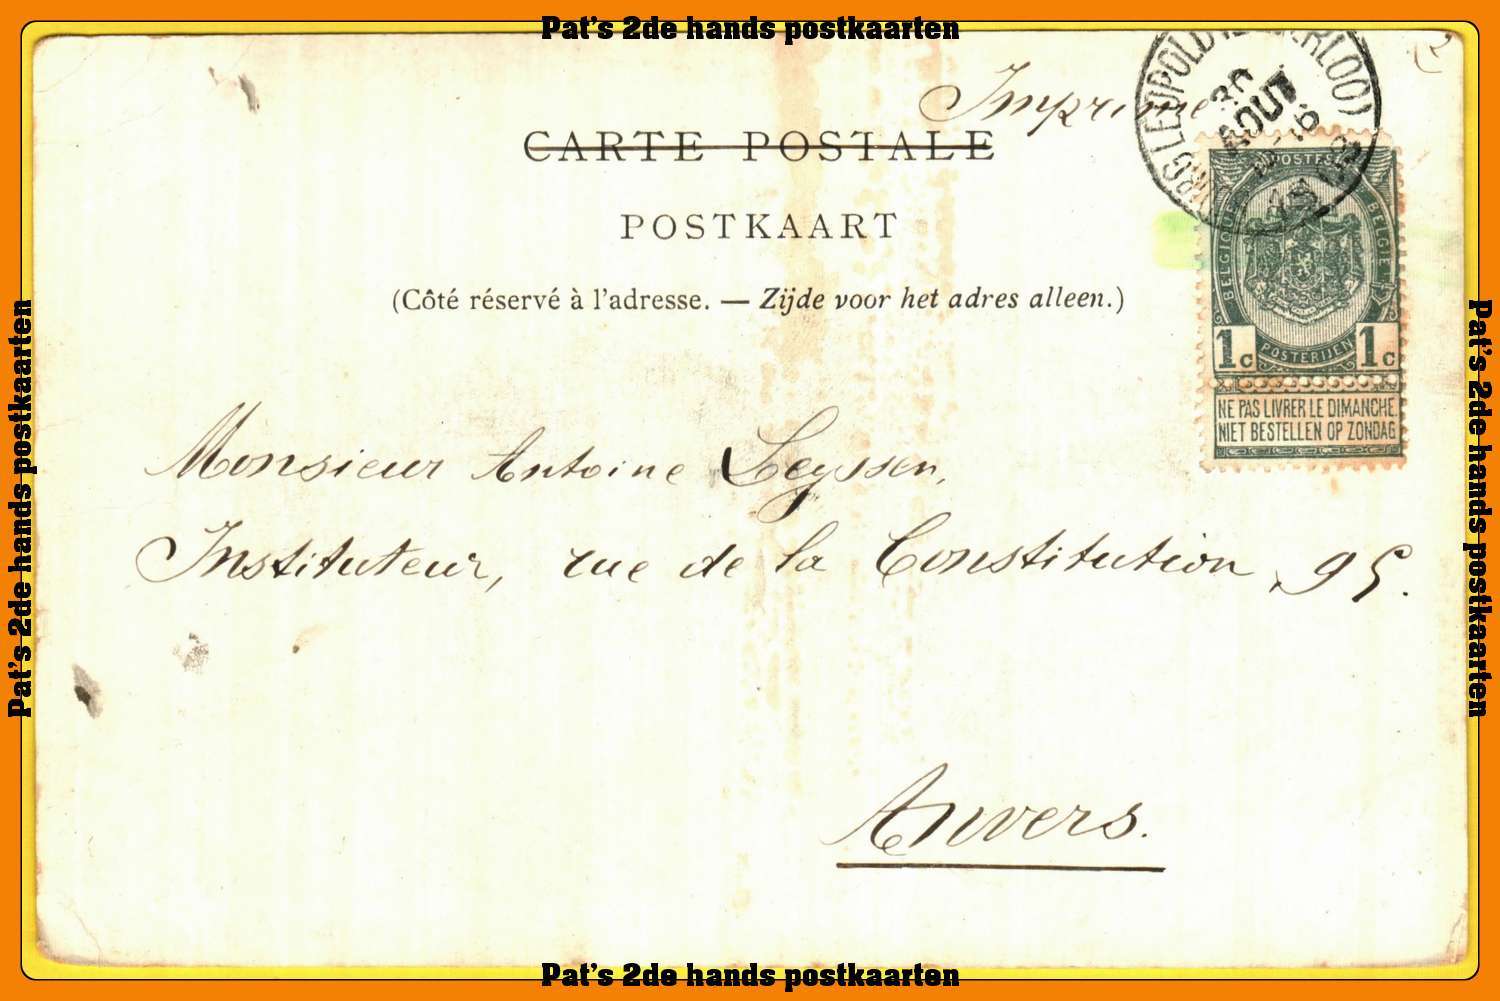 Pat's 2de hands postkaarten
Imprimé
CARTE POSTALE
POSTKAART
(Côté réservé à l'adresse. — Zijde voor het adres alleen.)
BOURG LEOPOLD (BEVERLOO)
30
AOUT
POSTES
BELGIQUE
BELGIE
1c
POSTERIJEN
1c
NE PAS LIVRER LE DIMANCHE.
NIET BESTELLEN OP ZONDAG
Monsieur Antoine Leyssen,
Instituteur, rue de la Constitution, 95.
Anvers.
Pat's 2de hands postkaarten
Pat's 2de hands postkaarten
Pat's 2de hands postkaarten